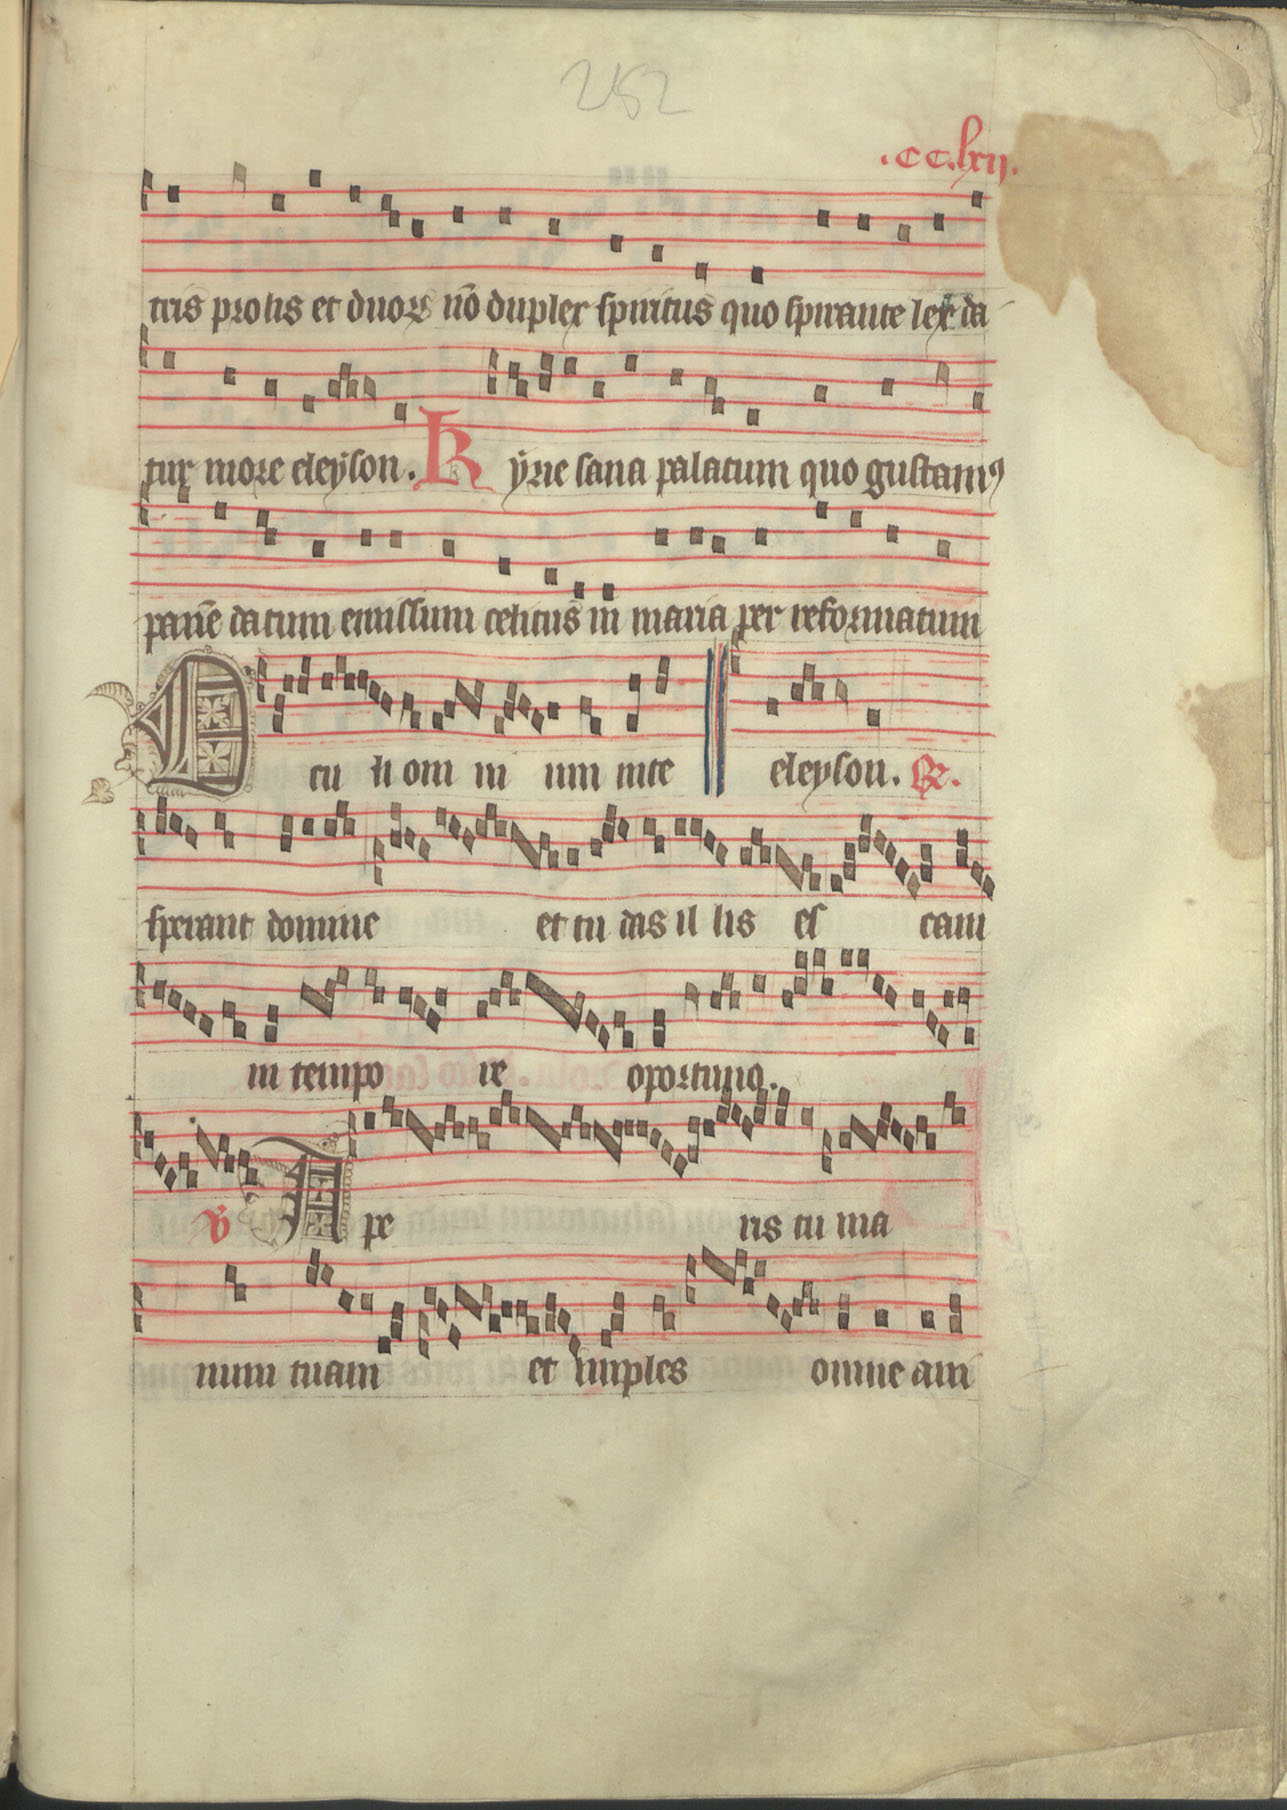 252
.cc.lxij.
tris prolis et duoꝝ nō duplex spiritus quo spirante lex da-
tur more eleyson. Kyrie sana palatum quo gustamꝰ
panē datum emissum celitus in maria per reformatum
Ocu li om ni um in te eleyson. Gͬ.
sperant domine et tu das il lis es cam
in tempo re. oportuno.
℣ Ape ris tu ma
num tuam et imples omne ani